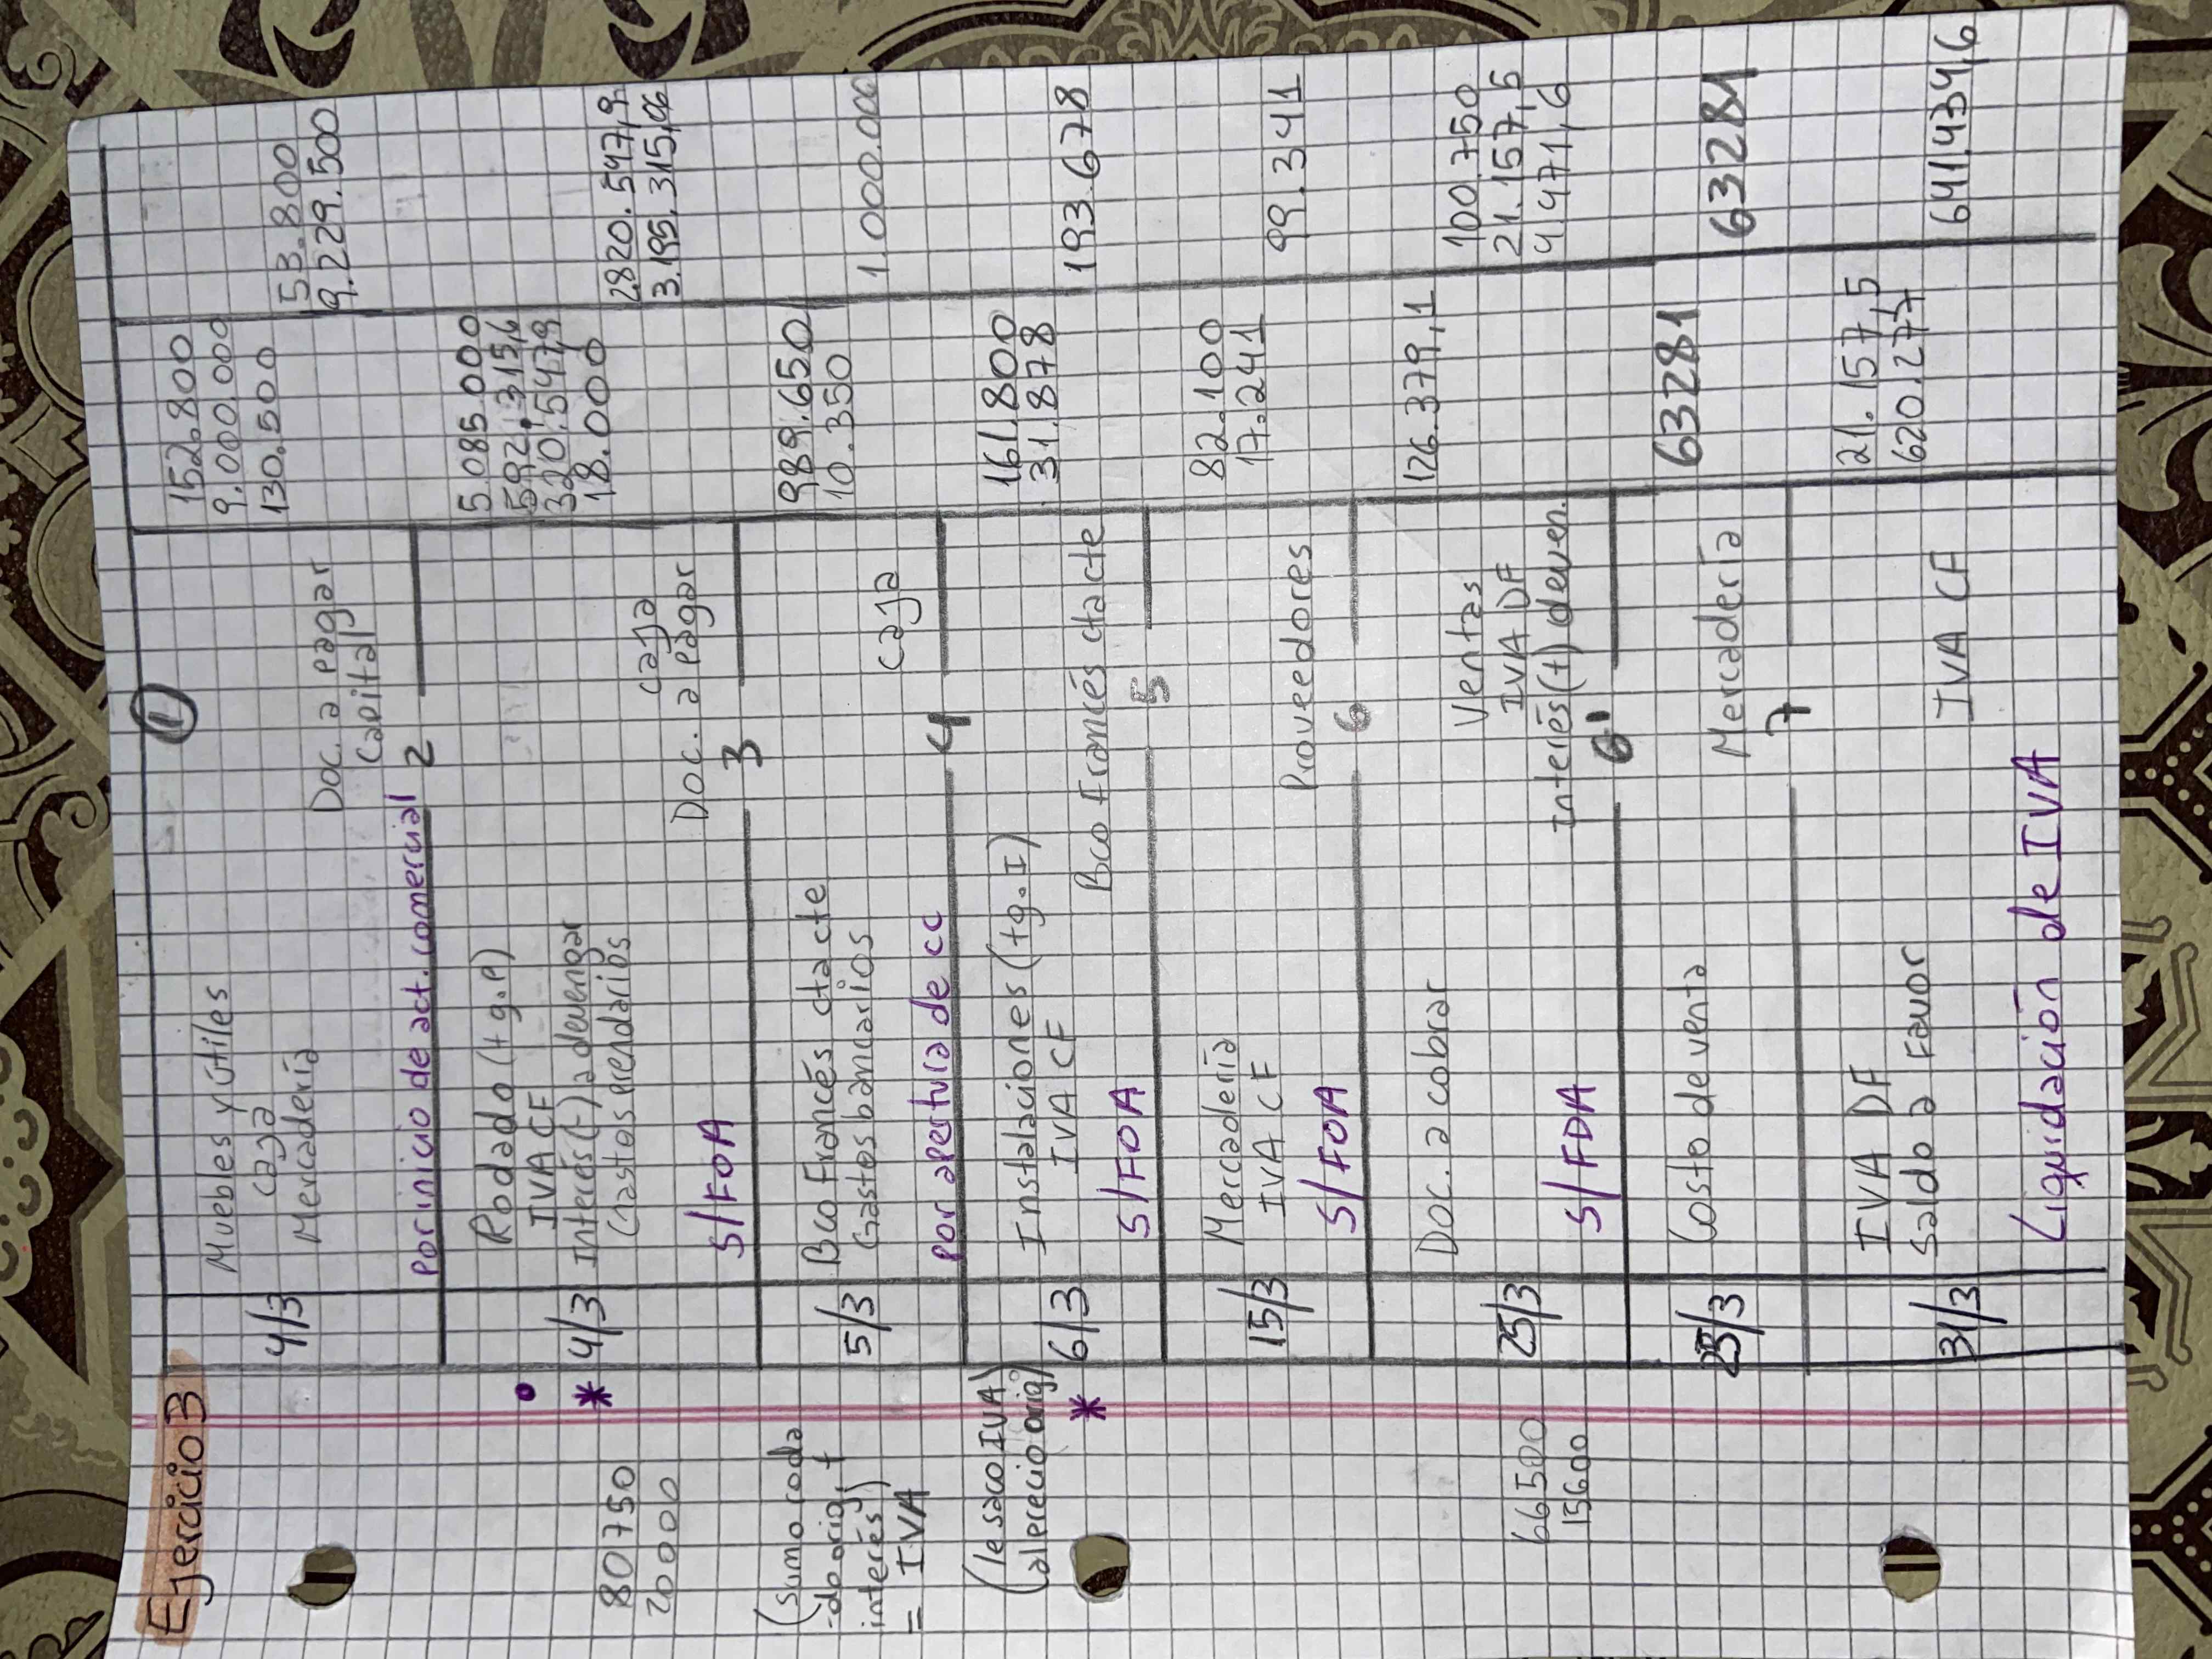 Ejercicio 3
①
Muebles y útiles 152.800
4/3 caja 9.000.000
Mercadería 130.500
Doc. a pagar 53.800
Capital 9.229.500
por inicio de act. comercial 2
Rodado (+ g.p) 5.085.000
• IVA CF 592.315,6
* 4/3 Interés (-) a devengar 320.547,9
Gastos prendarios 18.000
80750 caja 2820.547,9
20000 Doc. a pagar 3.195.315,06
S/FOA 3
(sumo roda
-do orig. +
interés)
= IVA
5/3 Bco Francés cta cte 989.650
Gastos bancarios 10.350
caja 1.000.000
por apertura de cc 4
(le saco IVA
al precio orig)
Instalaciones (+g.I) 161.800
* 6/3 IVA CF 31.878
Bco Francés cta cte 193.678
S/FOA 5
Mercadería 82.100
15/3 IVA CF 17.241
Proveedores 99.341
S/FOA 6
Doc. a cobrar 126.379,1
Ventas 100.750
66500 25/3 IVA DF 21.157,5
15600 Interés (+) deven. 4.471,6
S/FDA 6'
25/3 Costo de venta 63281
Mercadería 63281
7
IVA DF 21.157,5
Saldo a favor 620.277
31/3 IVA CF 641.434,6
Liquidación de IVA